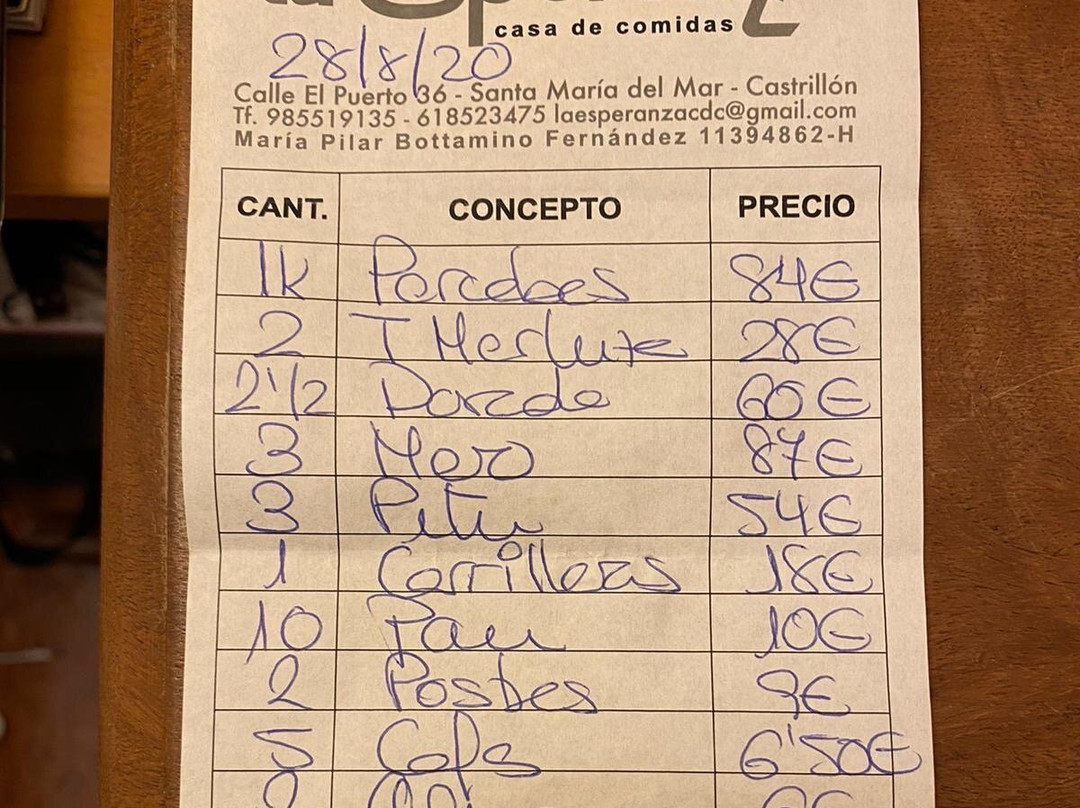 casa de comidas
28/8/20
Calle El Puerto 36 - Santa María del Mar - Castrillón
Tf. 985519135 - 618523475 laesperanzacdc@gmail.com
María Pilar Bottamino Fernández 11394862-H
CANT. CONCEPTO PRECIO
1k 84€
2 T Merluza 28€
2 1/2 Dorada 60€
3 Mero 87€
3 Pitu 54€
1 Carrilleras 18€
10 Pan 10€
2 Postres 9€
5 Cafs 6'50€